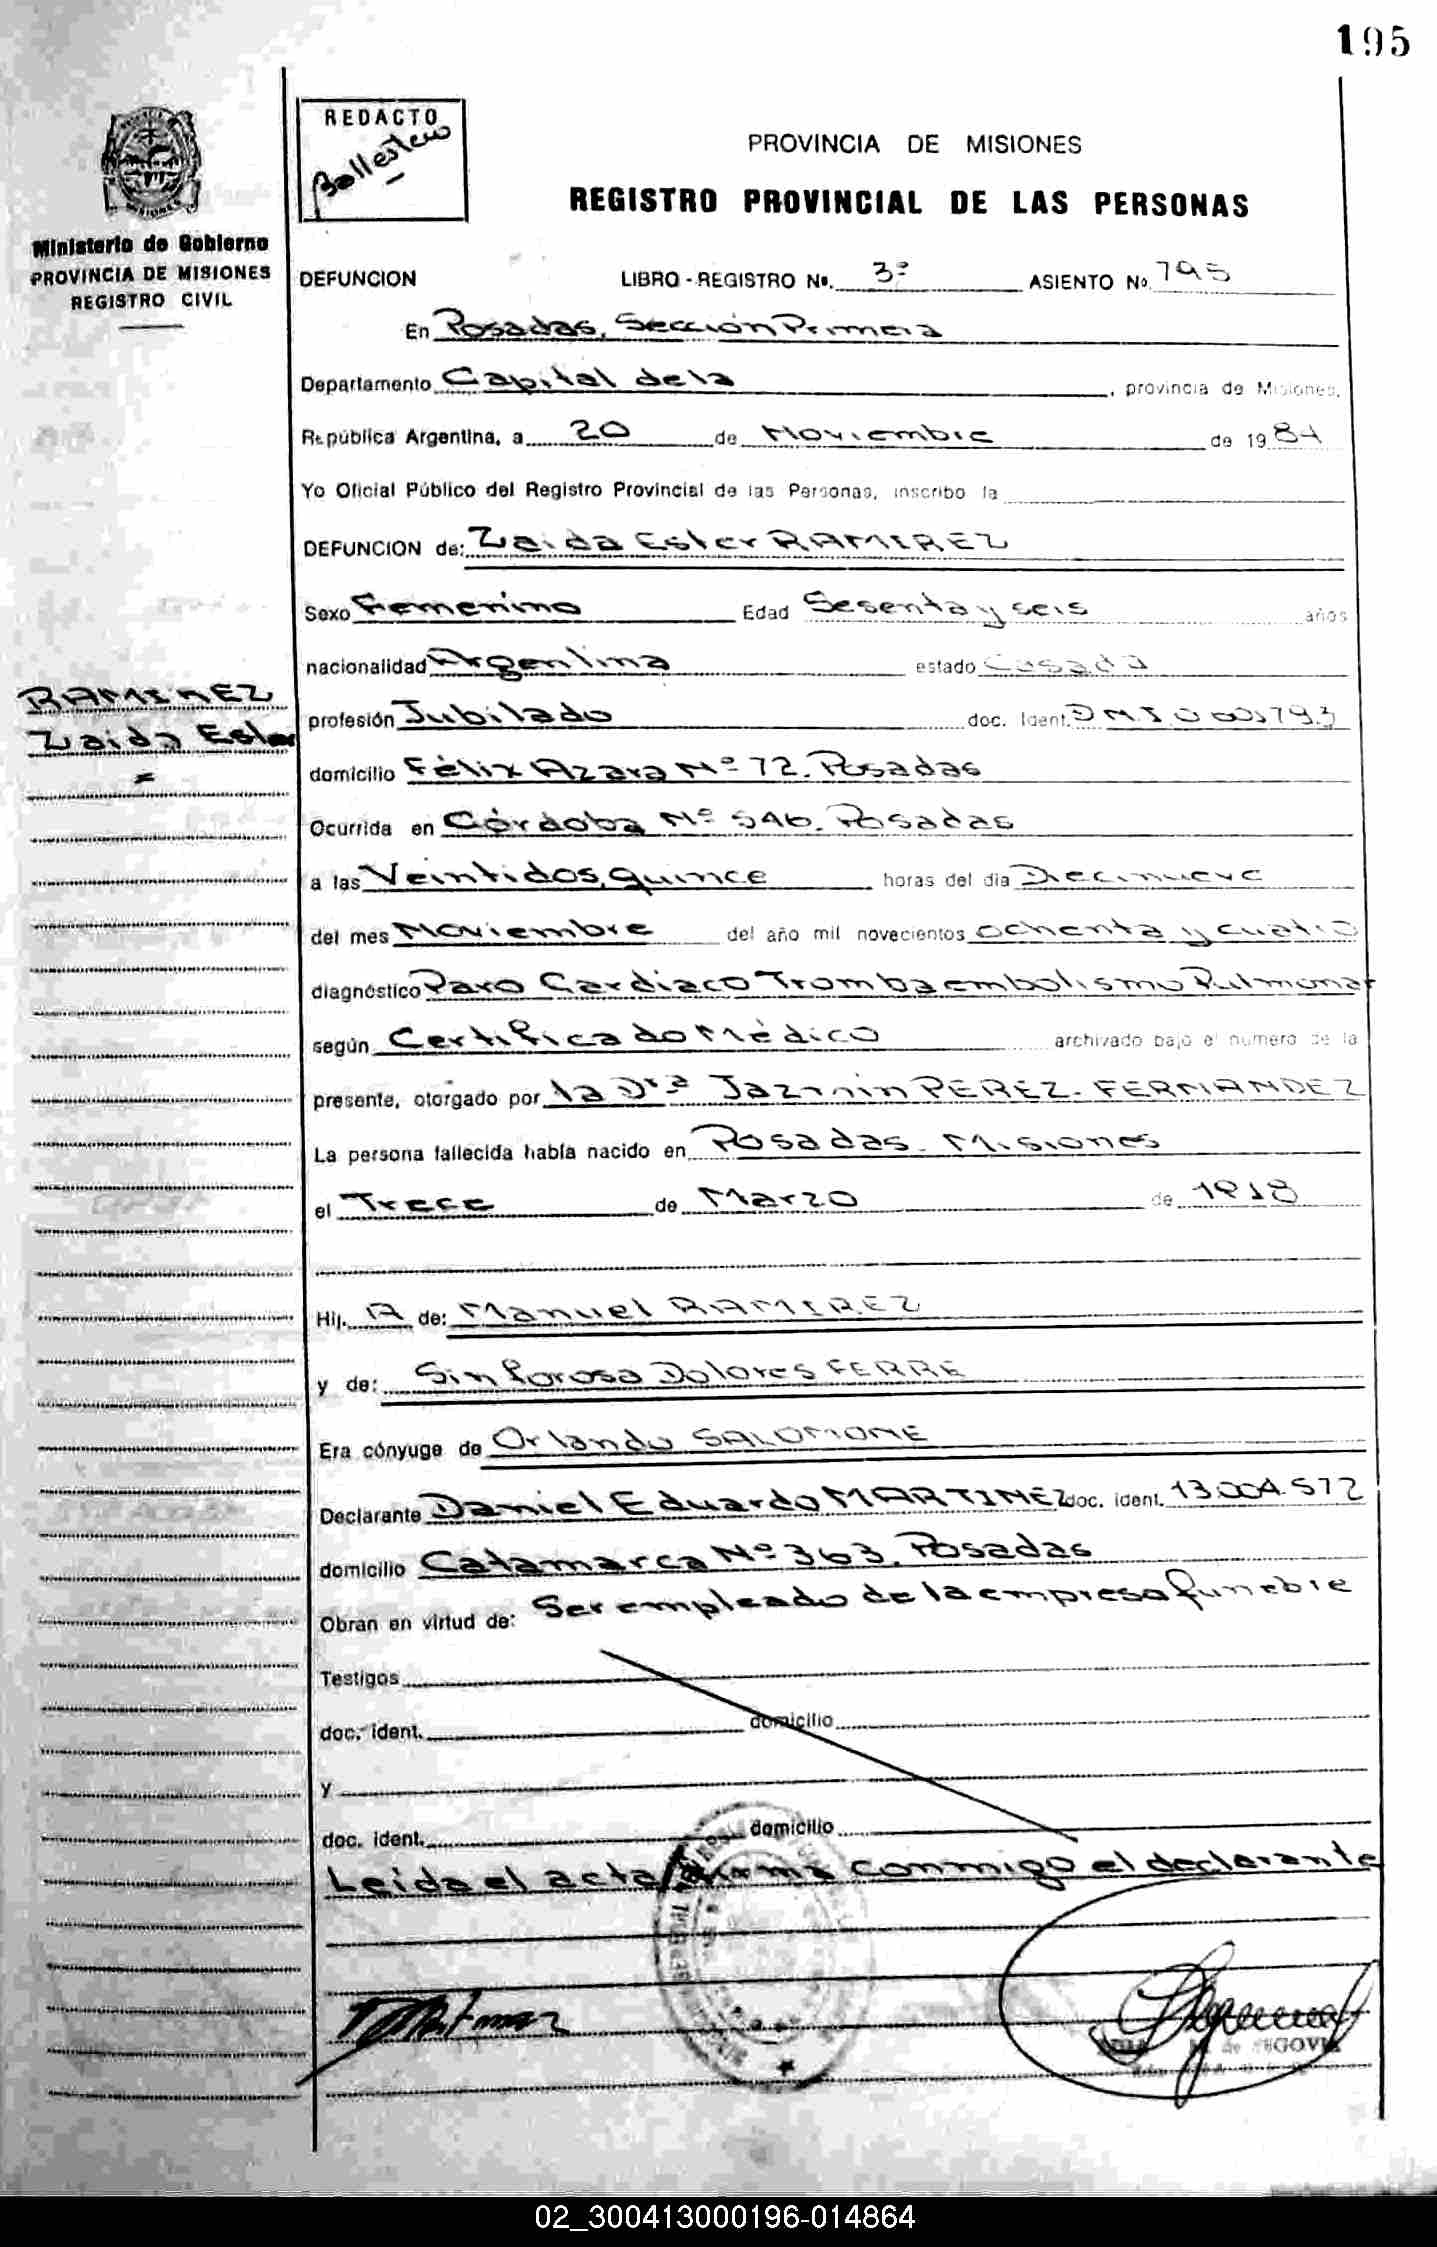 195
REDACTO
Ballestero
PROVINCIA DE MISIONES
REGISTRO PROVINCIAL DE LAS PERSONAS
Ministerio de Gobierno
PROVINCIA DE MISIONES
REGISTRO CIVIL
DEFUNCION LIBRO - REGISTRO No. 3º ASIENTO No. 795
En Posadas, Sección Primera
Departamento Capital de la , provincia de Misiones,
República Argentina, a 20 de Noviembre de 1984
Yo Oficial Público del Registro Provincial de las Personas, inscribo la
DEFUNCION de: Zaida Ester RAMIREZ
Sexo Femenino Edad Sesenta y seis años
nacionalidad Argentina estado Casada
RAMIREZ
Zaida Ester
profesión Jubilado doc. Ident.
domicilio Félix Azara Nº 72. Posadas
Ocurrida en Córdoba Nº 546. Posadas
a las Veintidos, quince horas del día Diecinueve
del mes Noviembre del año mil novecientos ochenta y cuatro
diagnóstico Paro Cardiaco Tromboembolismo Pulmonar
según Certificado Médico archivado bajo el numero de la
presente, otorgado por la Drª Jazmin PEREZ- FERNANDEZ
La persona fallecida había nacido en Posadas - Misiones
el Trece de Marzo de 1918
Hij. A de: Manuel RAMIREZ
y de: Sinforosa Dolores FERRE
Era cónyuge de Orlando SALOMONE
Declarante Daniel Eduardo MARTINEZ doc. ident. 13.004.572
domicilio Catamarca Nº 363. Posadas
Obran en virtud de: Ser empleado de la empresa funebre
Testigos
doc. ident. domicilio
y
doc. ident. domicilio
Leida el acta firma conmigo el declarante
de SEGOVIA
02_300413000196-014864